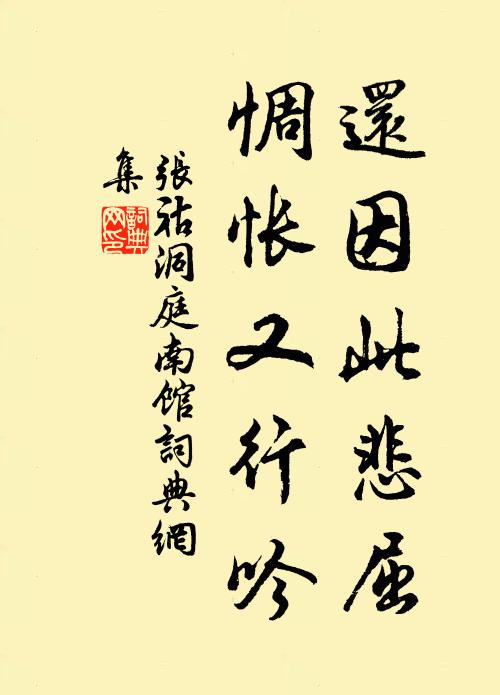 還因此悲屈
惆怅又行吟
張祜洞庭南館詞典網
集
詞典
网印